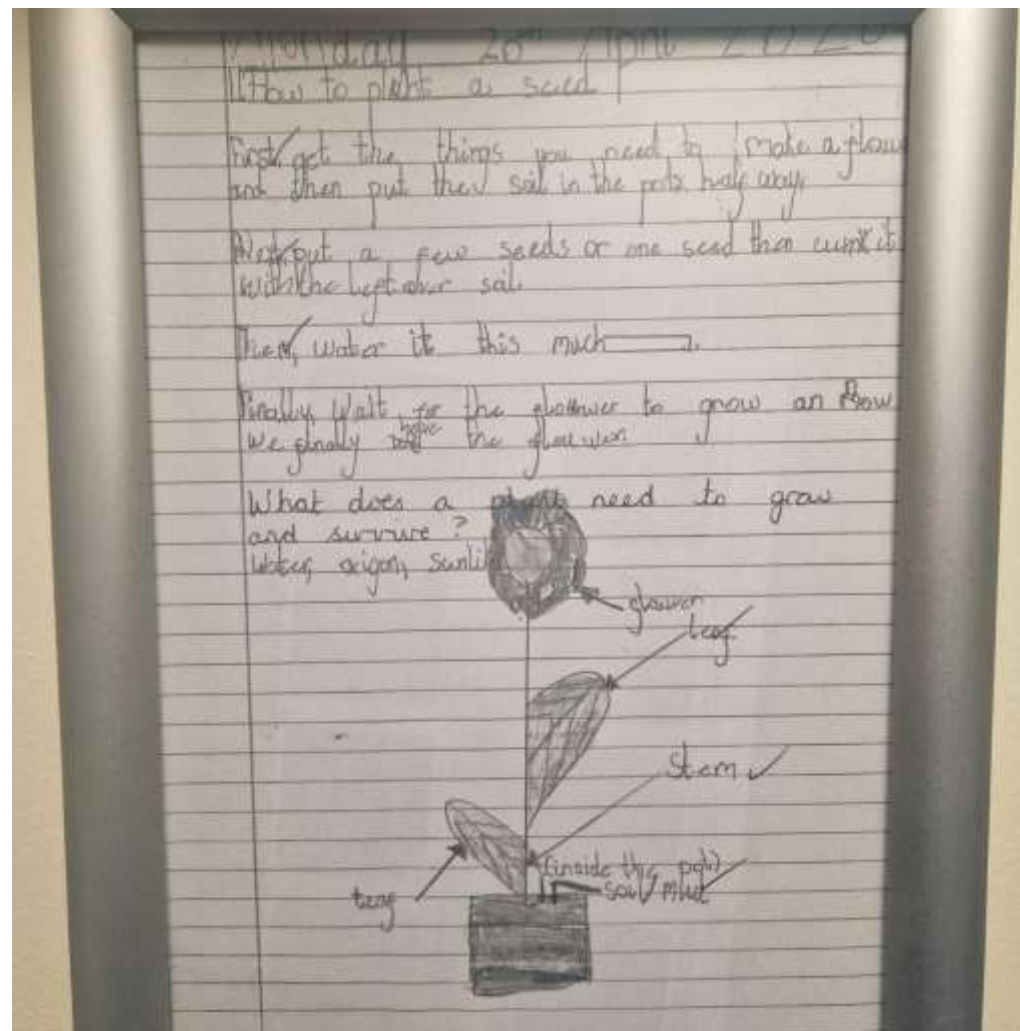 Monday 20th April 2020
How to plant a seed
First, get the things you need to make a flow
and then put the soil in the pots half way.
Next, put a few seeds or one seed then it
with the left over soil.
Then, water it this much
Finally, Wait for the to grow an now
We finally have the
What does a plant need to grow
and survive?
Water, oxigon, sunli
leaf
Stem
(inside the pot)
soil/mud
leaf